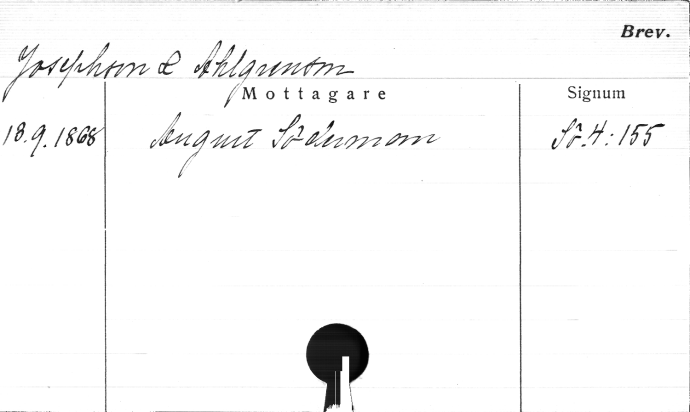 Brev.
Josephson & Ahlgrenson
Mottagare Signum
18.9.1868 August Söderman Sö.4:155